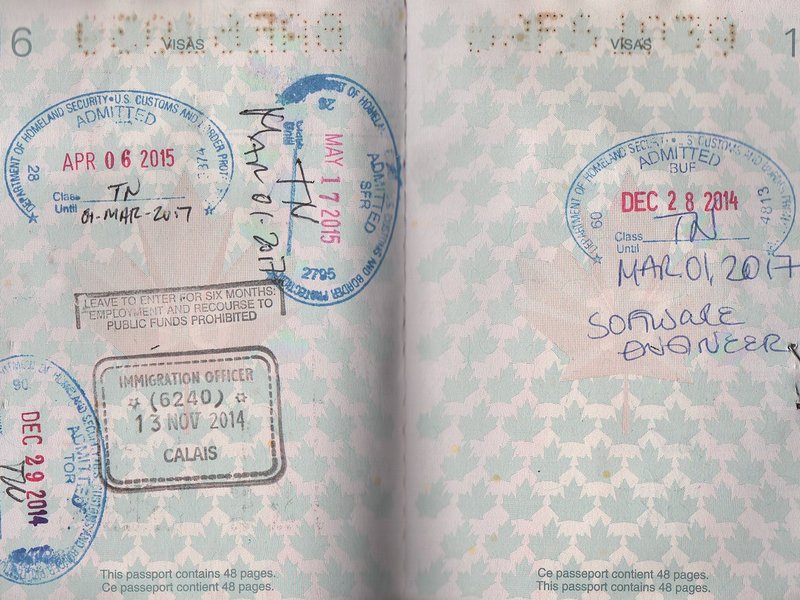 6
VISAS
DEPARTMENT OF HOMELAND SECURITY • U.S. CUSTOMS AND BORDER PROT
ADMITTED
28
APR 06 2015
Class TN
Until 01-MAR-2017
OF HOMELA
28
ADMITTED
SFR
MAY 17 2015
Class
Until
TN
MAR 01, 2017
2795
AND BORDER PROTECTION
LEAVE TO ENTER FOR SIX MONTHS:
EMPLOYMENT AND RECOURSE TO
PUBLIC FUNDS PROHIBITED
IMMIGRATION OFFICER
(6240)
13 NOV 2014
CALAIS
OF HOMELAND SECURITY
ADMITTED
TOR
DEC 29 2014
TN
This passport contains 48 pages.
Ce passeport contient 48 pages.
VISAS
1
DEPARTMENT OF HOMELAND SECURITY • U.S. CUSTOMS AND
ADMITTED
BUF
60
DEC 28 2014
4813
Class TN
Until
MAR 01, 2017
SOFTWARE
ENGINEER
Ce passeport contient 48 pages.
This passport contains 48 pages.